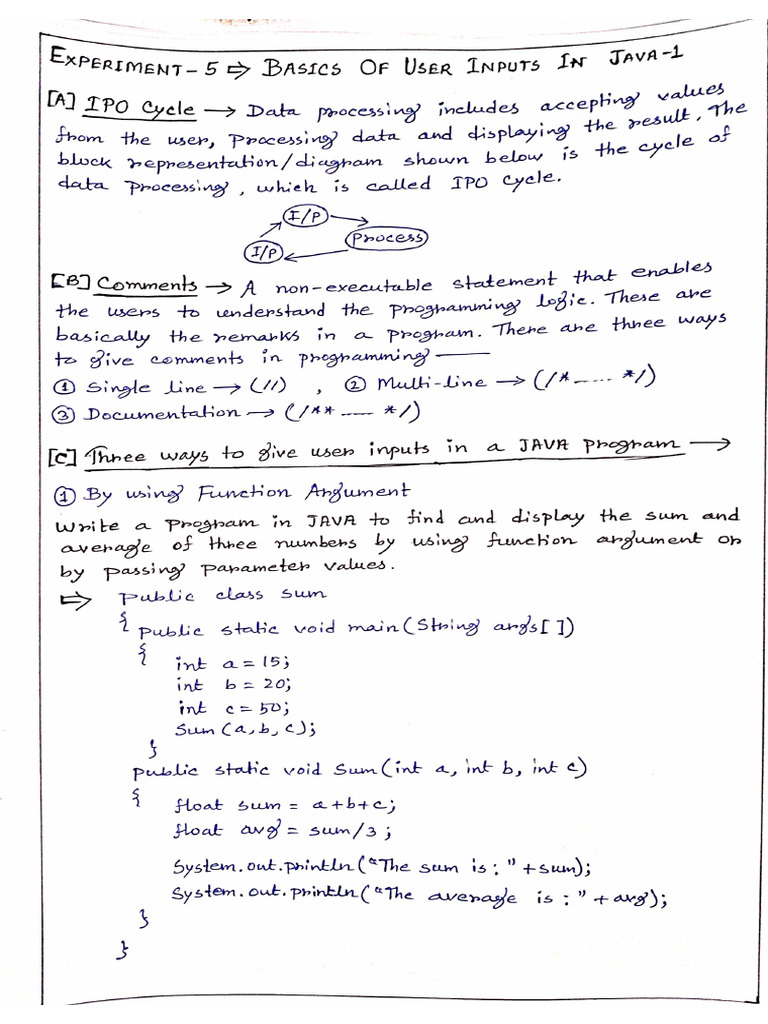 EXPERIMENT-5 ⇨ BASICS OF USER INPUTS IN JAVA-1
[A] IPO Cycle → Data processing includes accepting values
from the user, processing data and displaying the result. The
block representation/diagram shown below is the cycle of
data processing, which is called IPO Cycle.
I/P → Process
I/P
[B] Comments → A non-executable statement that enables
the users to understand the programming logic. These are
basically the remarks in a program. There are three ways
to give comments in programming —
① Single line → (//) , ② Multi-line → (/*_.... */)
③ Documentation → (/** .... */)
[C] Three ways to give user inputs in a JAVA program →
① By using Function Argument
Write a program in JAVA to find and display the sum and
average of three numbers by using function argument or
by passing parameter values.
⇨ public class sum
{
public static void main(String args[])
{
int a = 15;
int b = 20;
int c = 50;
Sum (a,b,c);
}
public static void Sum(int a, int b, int c)
{
float sum = a+b+c;
float avg = sum/3;
System.out.println("The sum is: "+sum);
System.out.println("The average is :"+avg);
}
}